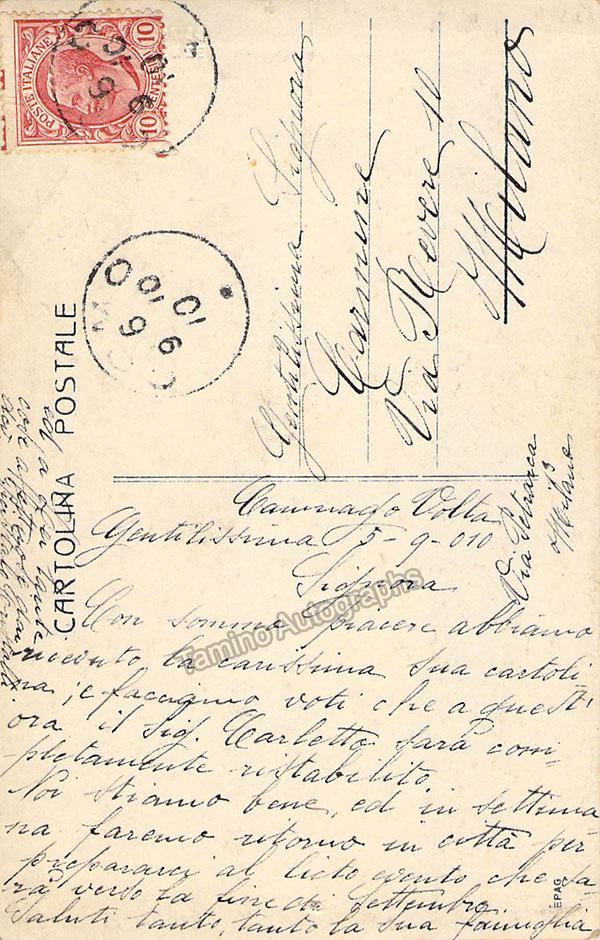 POSTE ITALIANE
10
10
CARTOLINA POSTALE
Gentilissima Signora
Carmine
Via Revere 10
Milano
Via Petrarca
Milano
Camnago Volta
5-9-010
Gentilissima
Signora
Con sommo piacere abbiamo
ricevuto la carissima sua cartoli
na; e facciamo voti che a quest'
ora il sig. Carletto sarà com-
pletamente ristabilito.
Noi stiamo bene, ed in settima
na faremo ritorno in città per
prepararci al lieto evento che sa-
rà verso la fine di Settembre
Saluti tanto, tanto la sua famiglia
EPAG
Tamino Autographs